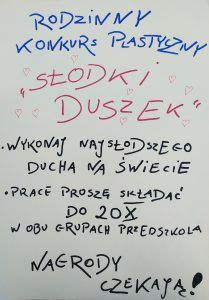 RODZINNY
KONKURS PLASTYCZNY
„SŁODKI
DUSZEK"
• WYKONAJ NAJSŁODSZEGO
DUCHA NA ŚWIECIE
• PRACE PROSZĘ SKŁADAĆ
DO 20 X
W OBU GRUPACH PRZEDSZKOLA
NAGRODY
CZEKAJĄ!